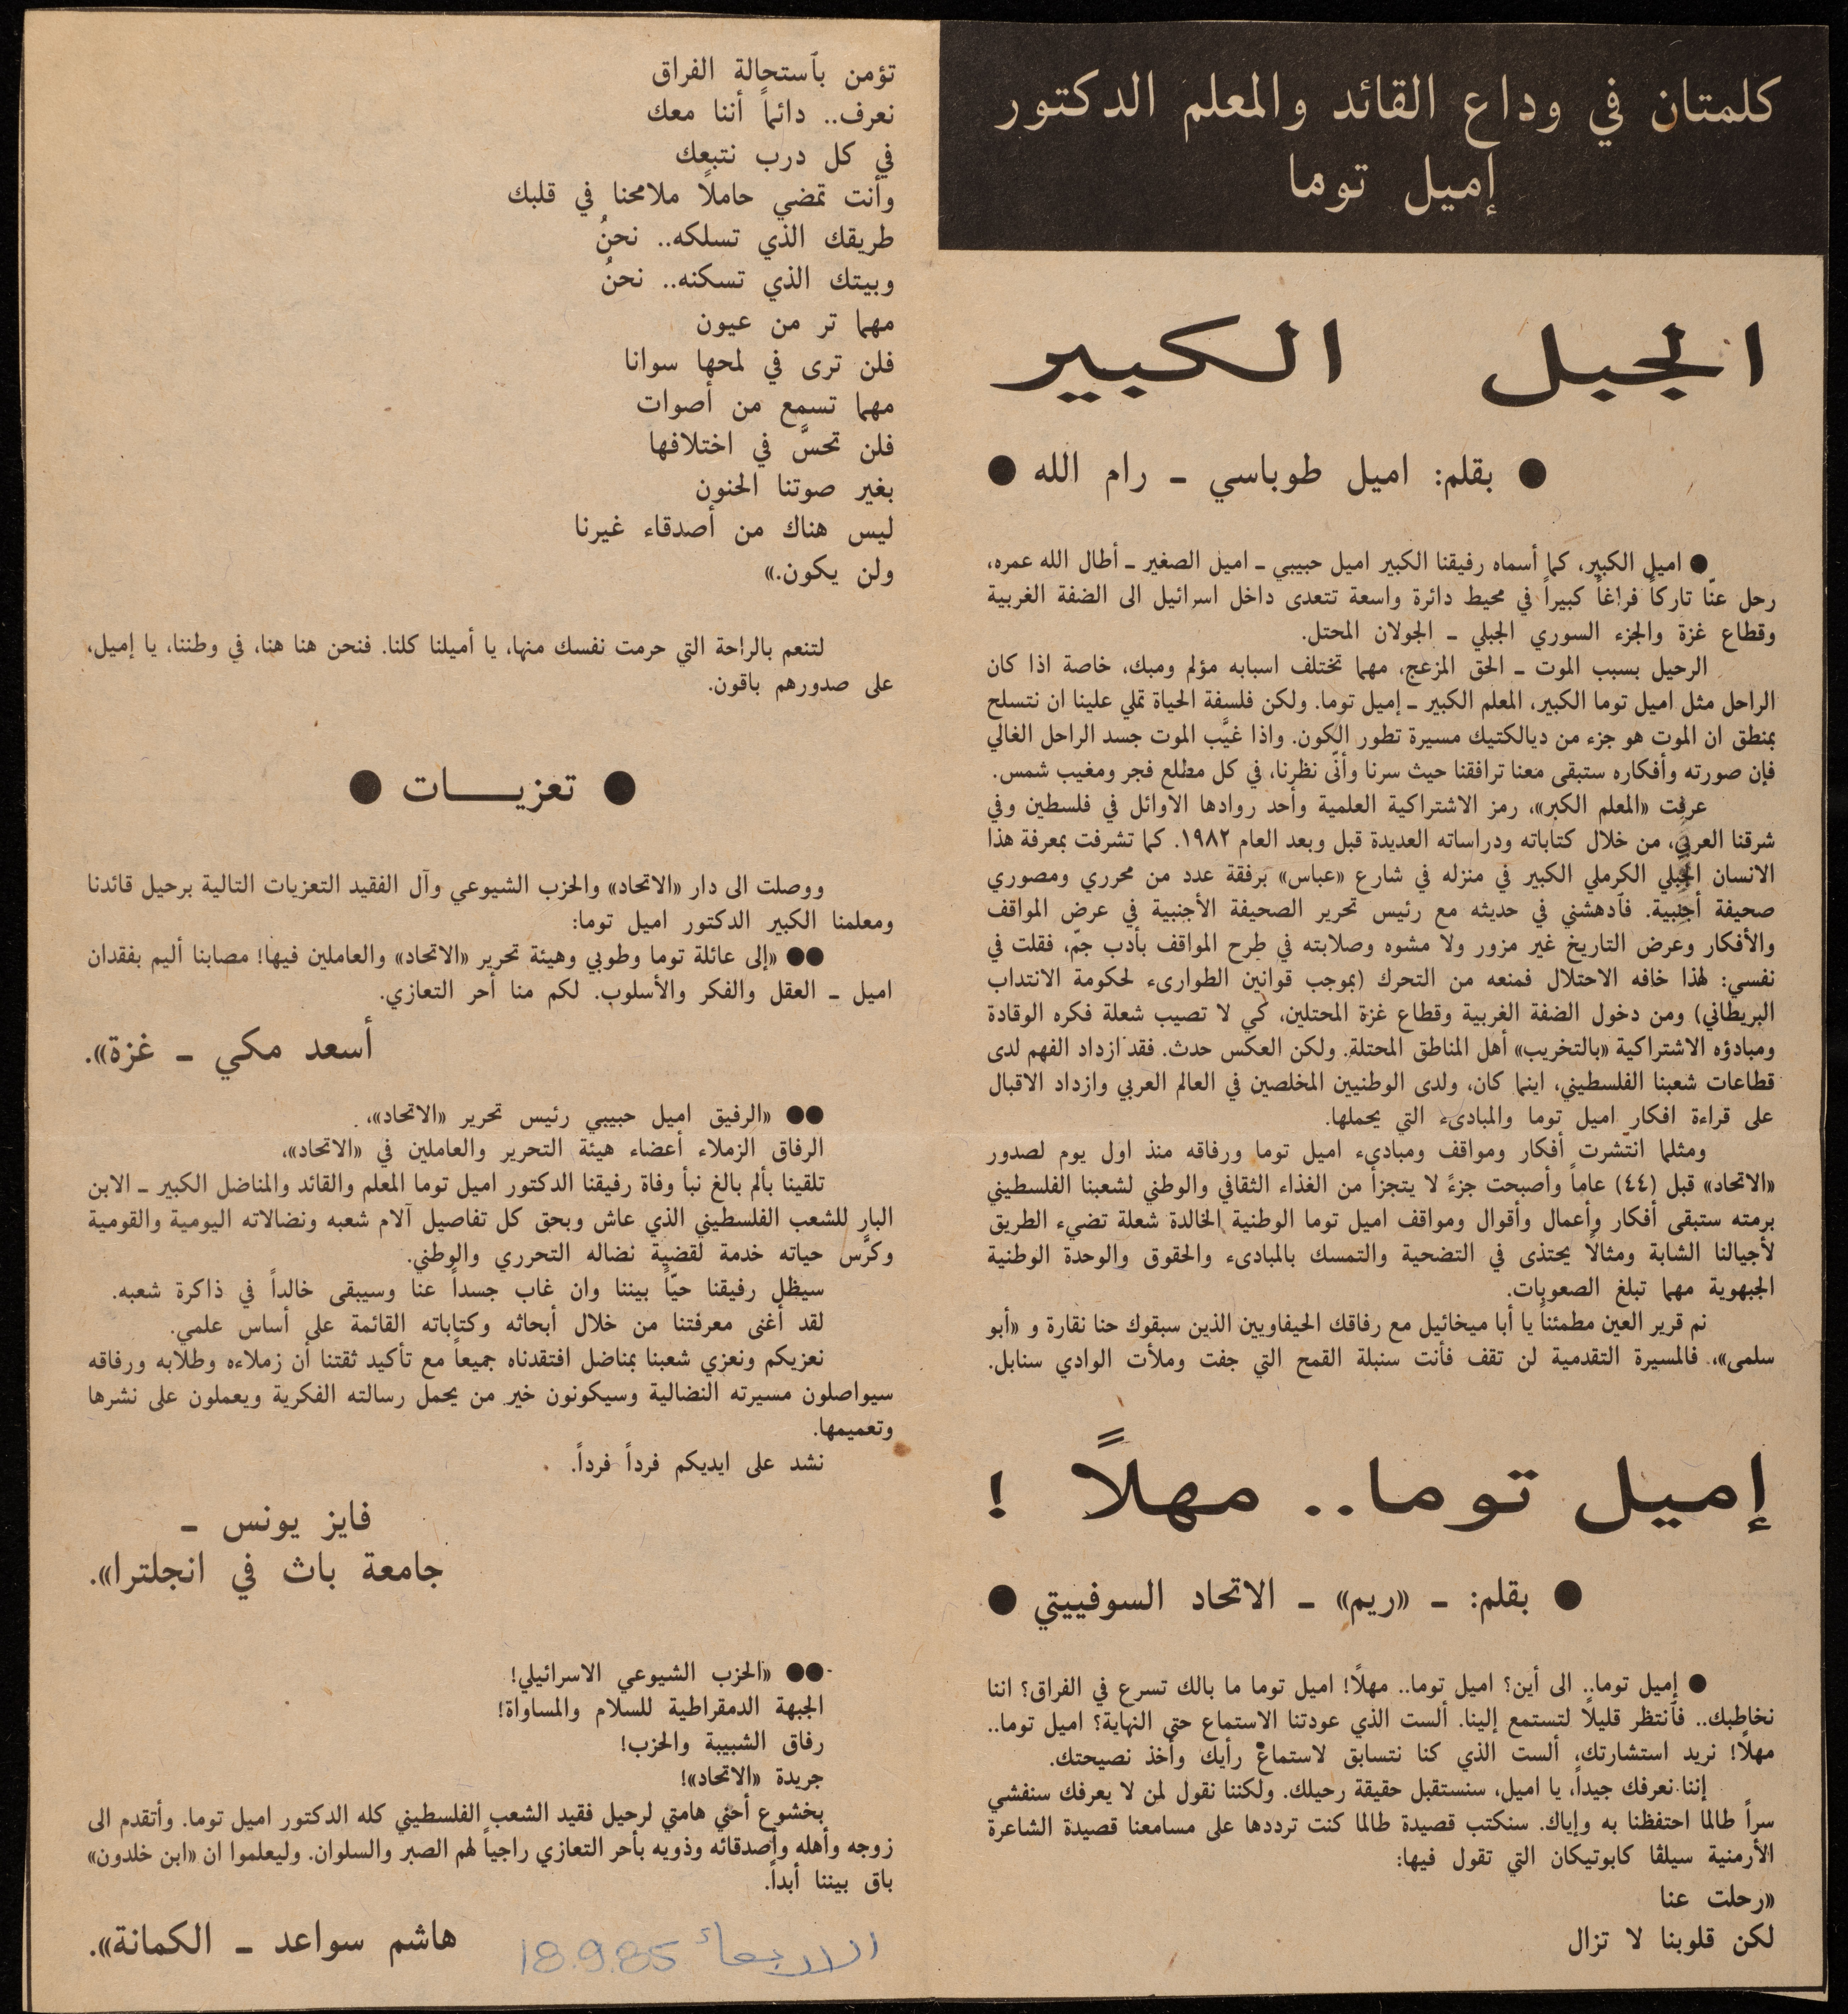 كلمتان في وداع القائد والمعلم الدكتور
إميل توما
الجبل الكبير
● بقلم: اميل طوباسي ـ رام الله ●
● اميل الكبير، كما أسماه رفيقنا الكبير اميل حبيبي ـ اميل الصغير ـ أطال الله عمره،
رحل عنّا تاركاً فراغاً كبيراً في محيط دائرة واسعة تتعدى داخل اسرائيل الى الضفة الغربية
وقطاع غزة والجزء السوري الجبلي ـ الجولان المحتل.
الرحيل بسبب الموت ـ الحق المزعج، مهما تختلف اسبابه مؤلم ومبك، خاصة اذا كان
الراحل مثل اميل توما الكبير، المعلم الكبير ـ إميل توما. ولكن فلسفة الحياة تملي علينا ان نتسلح
بمنطق ان الموت هو جزء من ديالكتيك مسيرة تطور الكون. واذا غيَّب الموت جسد الراحل الغالي
فإن صورته وأفكاره ستبقى معنا ترافقنا حيث سرنا وأنّى نظرنا، في كل مطلع فجر ومغيب شمس.
عرفت «المعلم الكبر»، رمز الاشتراكية العلمية وأحد روادها الاوائل في فلسطين وفي
شرقنا العربي، من خلال كتاباته ودراساته العديدة قبل وبعد العام ١٩٨٢. كما تشرفت بمعرفة هذا
الانسان الجبلي الكرملي الكبير في منزله في شارع «عباس» برفقة عدد من محرري ومصوري
صحيفة أجنبية. فأدهشني في حديثه مع رئيس تحرير الصحيفة الأجنبية في عرض المواقف
والأفكار وعرض التاريخ غير مزور ولا مشوه وصلابته في طرح المواقف بأدب جمّ، فقلت في
نفسي: لهذا خافه الاحتلال فمنعه من التحرك (بموجب قوانين الطوارىء لحكومة الانتداب
البريطاني) ومن دخول الضفة الغربية وقطاع غزة المحتلين، كي لا تصيب شعلة فكره الوقادة
ومبادؤه الاشتراكية «بالتخريب» أهل المناطق المحتلة. ولكن العكس حدث. فقد ازداد الفهم لدى
قطاعات شعبنا الفلسطيني، اينما كان، ولدى الوطنيين المخلصين في العالم العربي وازداد الاقبال
على قراءة افكار اميل توما والمبادىء التي يحملها.
ومثلما انتشرت أفكار ومواقف ومبادىء اميل توما ورفاقه منذ اول يوم لصدور
«الاتحاد» قبل (٤٤) عاماً وأصبحت جزءً لا يتجزأ من الغذاء الثقافي والوطني لشعبنا الفلسطيني
برمته ستبقى أفكار وأعمال وأقوال ومواقف اميل توما الوطنية الخالدة شعلة تضيء الطريق
لأجيالنا الشابة ومثالاً يحتذى في التضحية والتمسك بالمبادىء والحقوق والوحدة الوطنية
الجبهوية مهما تبلغ الصعوبات.
نم قرير العين مطمئناً يا أبا ميخائيل مع رفاقك الحيفاويين الذين سبقوك حنا نقارة و «أبو
سلمى».. فالمسيرة التقدمية لن تقف فأنت سنبلة القمح التي جفت وملأت الوادي سنابل.
إميل توما.. مهلاً !
● بقلم: ـ «ريم» ـ الاتحاد السوفييتي ●
● إميل توما.. الى أين؟ اميل توما.. مهلاً! اميل توما ما بالك تسرع في الفراق؟ اننا
نخاطبك.. فأنتظر قليلاً لتستمع إلينا. ألست الذي عودتنا الاستماع حتى النهاية؟ اميل توما..
مهلاً! نريد استشارتك، ألست الذي كنا نتسابق لاستماع رأيك وأخذ نصيحتك.
إننا نعرفك جيداً، يا اميل، سنستقبل حقيقة رحيلك. ولكننا نقول لمن لا يعرفك سنفشي
سراً طالما احتفظنا به وإياك. سنكتب قصيدة طالما كنت ترددها على مسامعنا قصيدة الشاعرة
الأرمنية سيلفا كابوتيكان التي تقول فيها:
«رحلت عنا
لكن قلوبنا لا تزال
تؤمن بأستحالة الفراق
نعرف.. دائماً أننا معك
في كل درب نتبعك
وأنت تمضي حاملاً ملامحنا في قلبك
طريقك الذي تسلكه.. نحنُ
وبيتك الذي تسكنه.. نحنُ
مهما تر من عيون
فلن ترى في لمحها سوانا
مهما تسمع من أصوات
فلن تحسَّ في اختلافها
بغير صوتنا الحنون
ليس هناك من أصدقاء غيرنا
ولن يكون.»
لتنعم بالراحة التي حرمت نفسك منها، يا أميلنا كلنا. فنحن هنا هنا، في وطننا، يا إميل،
على صدورهم باقون.
● تعزيـــات ●
ووصلت الى دار «الاتحاد» والحزب الشيوعي وآل الفقيد التعزيات التالية برحيل قائدنا
ومعلمنا الكبير الدكتور اميل توما:
●● «إلى عائلة توما وطوبي وهيئة تحرير «الاتحاد» والعاملين فيها! مصابنا أليم بفقدان
اميل ـ العقل والفكر والأسلوب. لكم منا أحر التعازي.
أسعد مكي ـ غزة».
●● «الرفيق اميل حبيبي رئيس تحرير «الاتحاد»،
الرفاق الزملاء أعضاء هيئة التحرير والعاملين في «الاتحاد»،
تلقينا بألم بالغ نبأ وفاة رفيقنا الدكتور اميل توما المعلم والقائد والمناضل الكبير ـ الابن
البار للشعب الفلسطيني الذي عاش وبحق كل تفاصيل آلام شعبه ونضالاته اليومية والقومية
وكرَّس حياته خدمة لقضية نضاله التحرري والوطني.
سيظل رفيقنا حيّاً بيننا وان غاب جسداً عنا وسيبقى خالداً في ذاكرة شعبه.
لقد أغنى معرفتنا من خلال أبحاثه وكتاباته القائمة على أساس علمي.
نعزيكم ونعزي شعبنا بمناضل افتقدناه جميعاً مع تأكيد ثقتنا أن زملاءه وطلابه ورفاقه
سيواصلون مسيرته النضالية وسيكونون خير من يحمل رسالته الفكرية ويعملون على نشرها
وتعميمها.
نشد على ايديكم فرداً فرداً.
فايز يونس ـ
جامعة باث في انجلترا».
●● «الحزب الشيوعي الاسرائيلي!
الجبهة الدمقراطية للسلام والمساواة!
رفاق الشبيبة والحزب!
جريدة «الاتحاد»!
بخشوع أحني هامتي لرحيل فقيد الشعب الفلسطيني كله الدكتور اميل توما. وأتقدم الى
زوجه وأهله وأصدقائه وذويه بأحر التعازي راجياً لهم الصبر والسلوان. وليعلموا ان «ابن خلدون»
باق بيننا أبداً.
هاشم سواعد ـ الكمانة».
الاربعاء 18.9.85